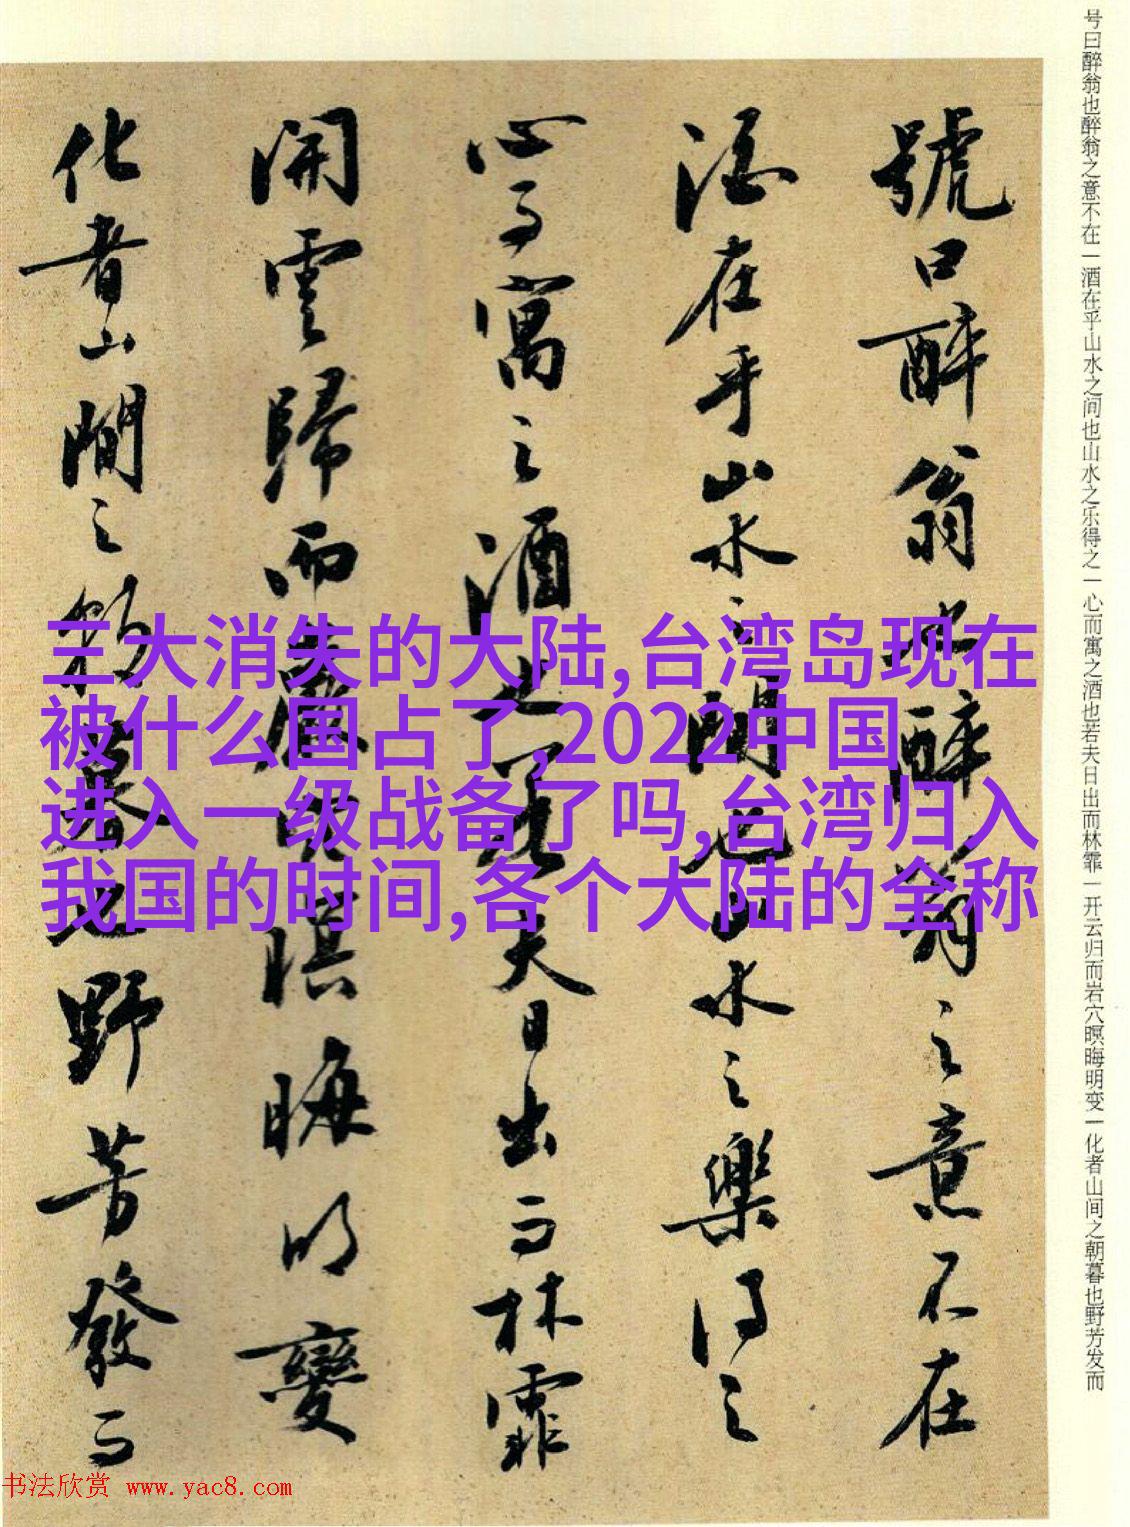 号曰醉翁也醉翁之意不在一酒在乎山水之间也山水之乐得之一心而寓之酒也若夫日出而林霏一开云归而岩穴暝晦明变一化者山间之朝暮也野芳发而
號曰醉翁也醉翁之意不在
酒在乎山水之間也山水之樂得之
心而寓之酒也若夫日出而林霏
開雲歸而巖穴暝晦明變
化者山間之朝暮也野芳發而
三大消失的大陆,台湾岛现在
被什么国占了,2022中国
进入一级战备了吗,台湾归入
我国的时间,各个大陆的全称
书法欣赏 www.yac8.com